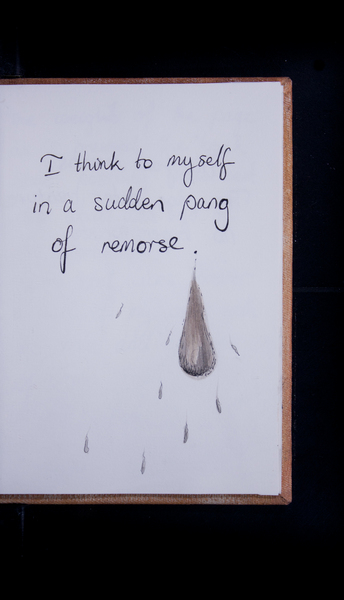 I think to myself
in a sudden pang
of remorse.